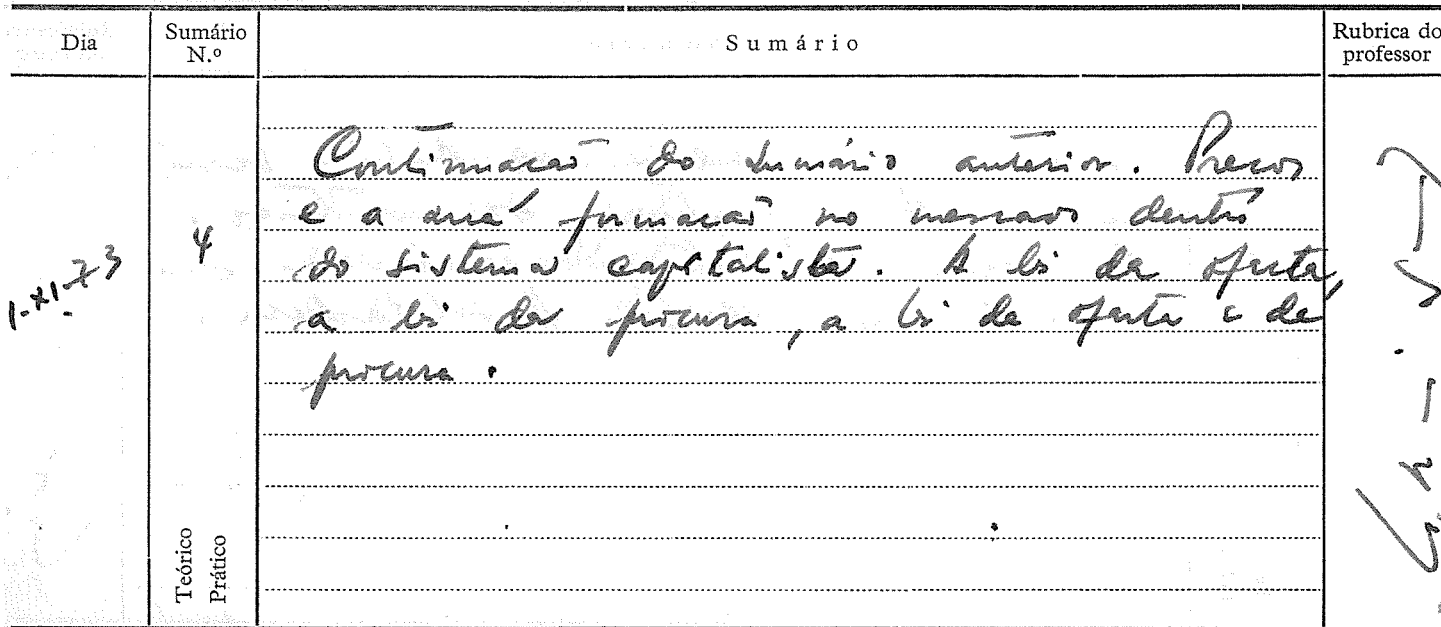 Dia
Sumário N.º
Sumário
Rubrica do professor
1-XI-73
4
Continuação do sumário anterior. Preços
e a sua formação no mercado dentro
do sistema capitalista. A lei da oferta,
a lei da procura, a lei da oferta e da
procura.
Teórico
Prático